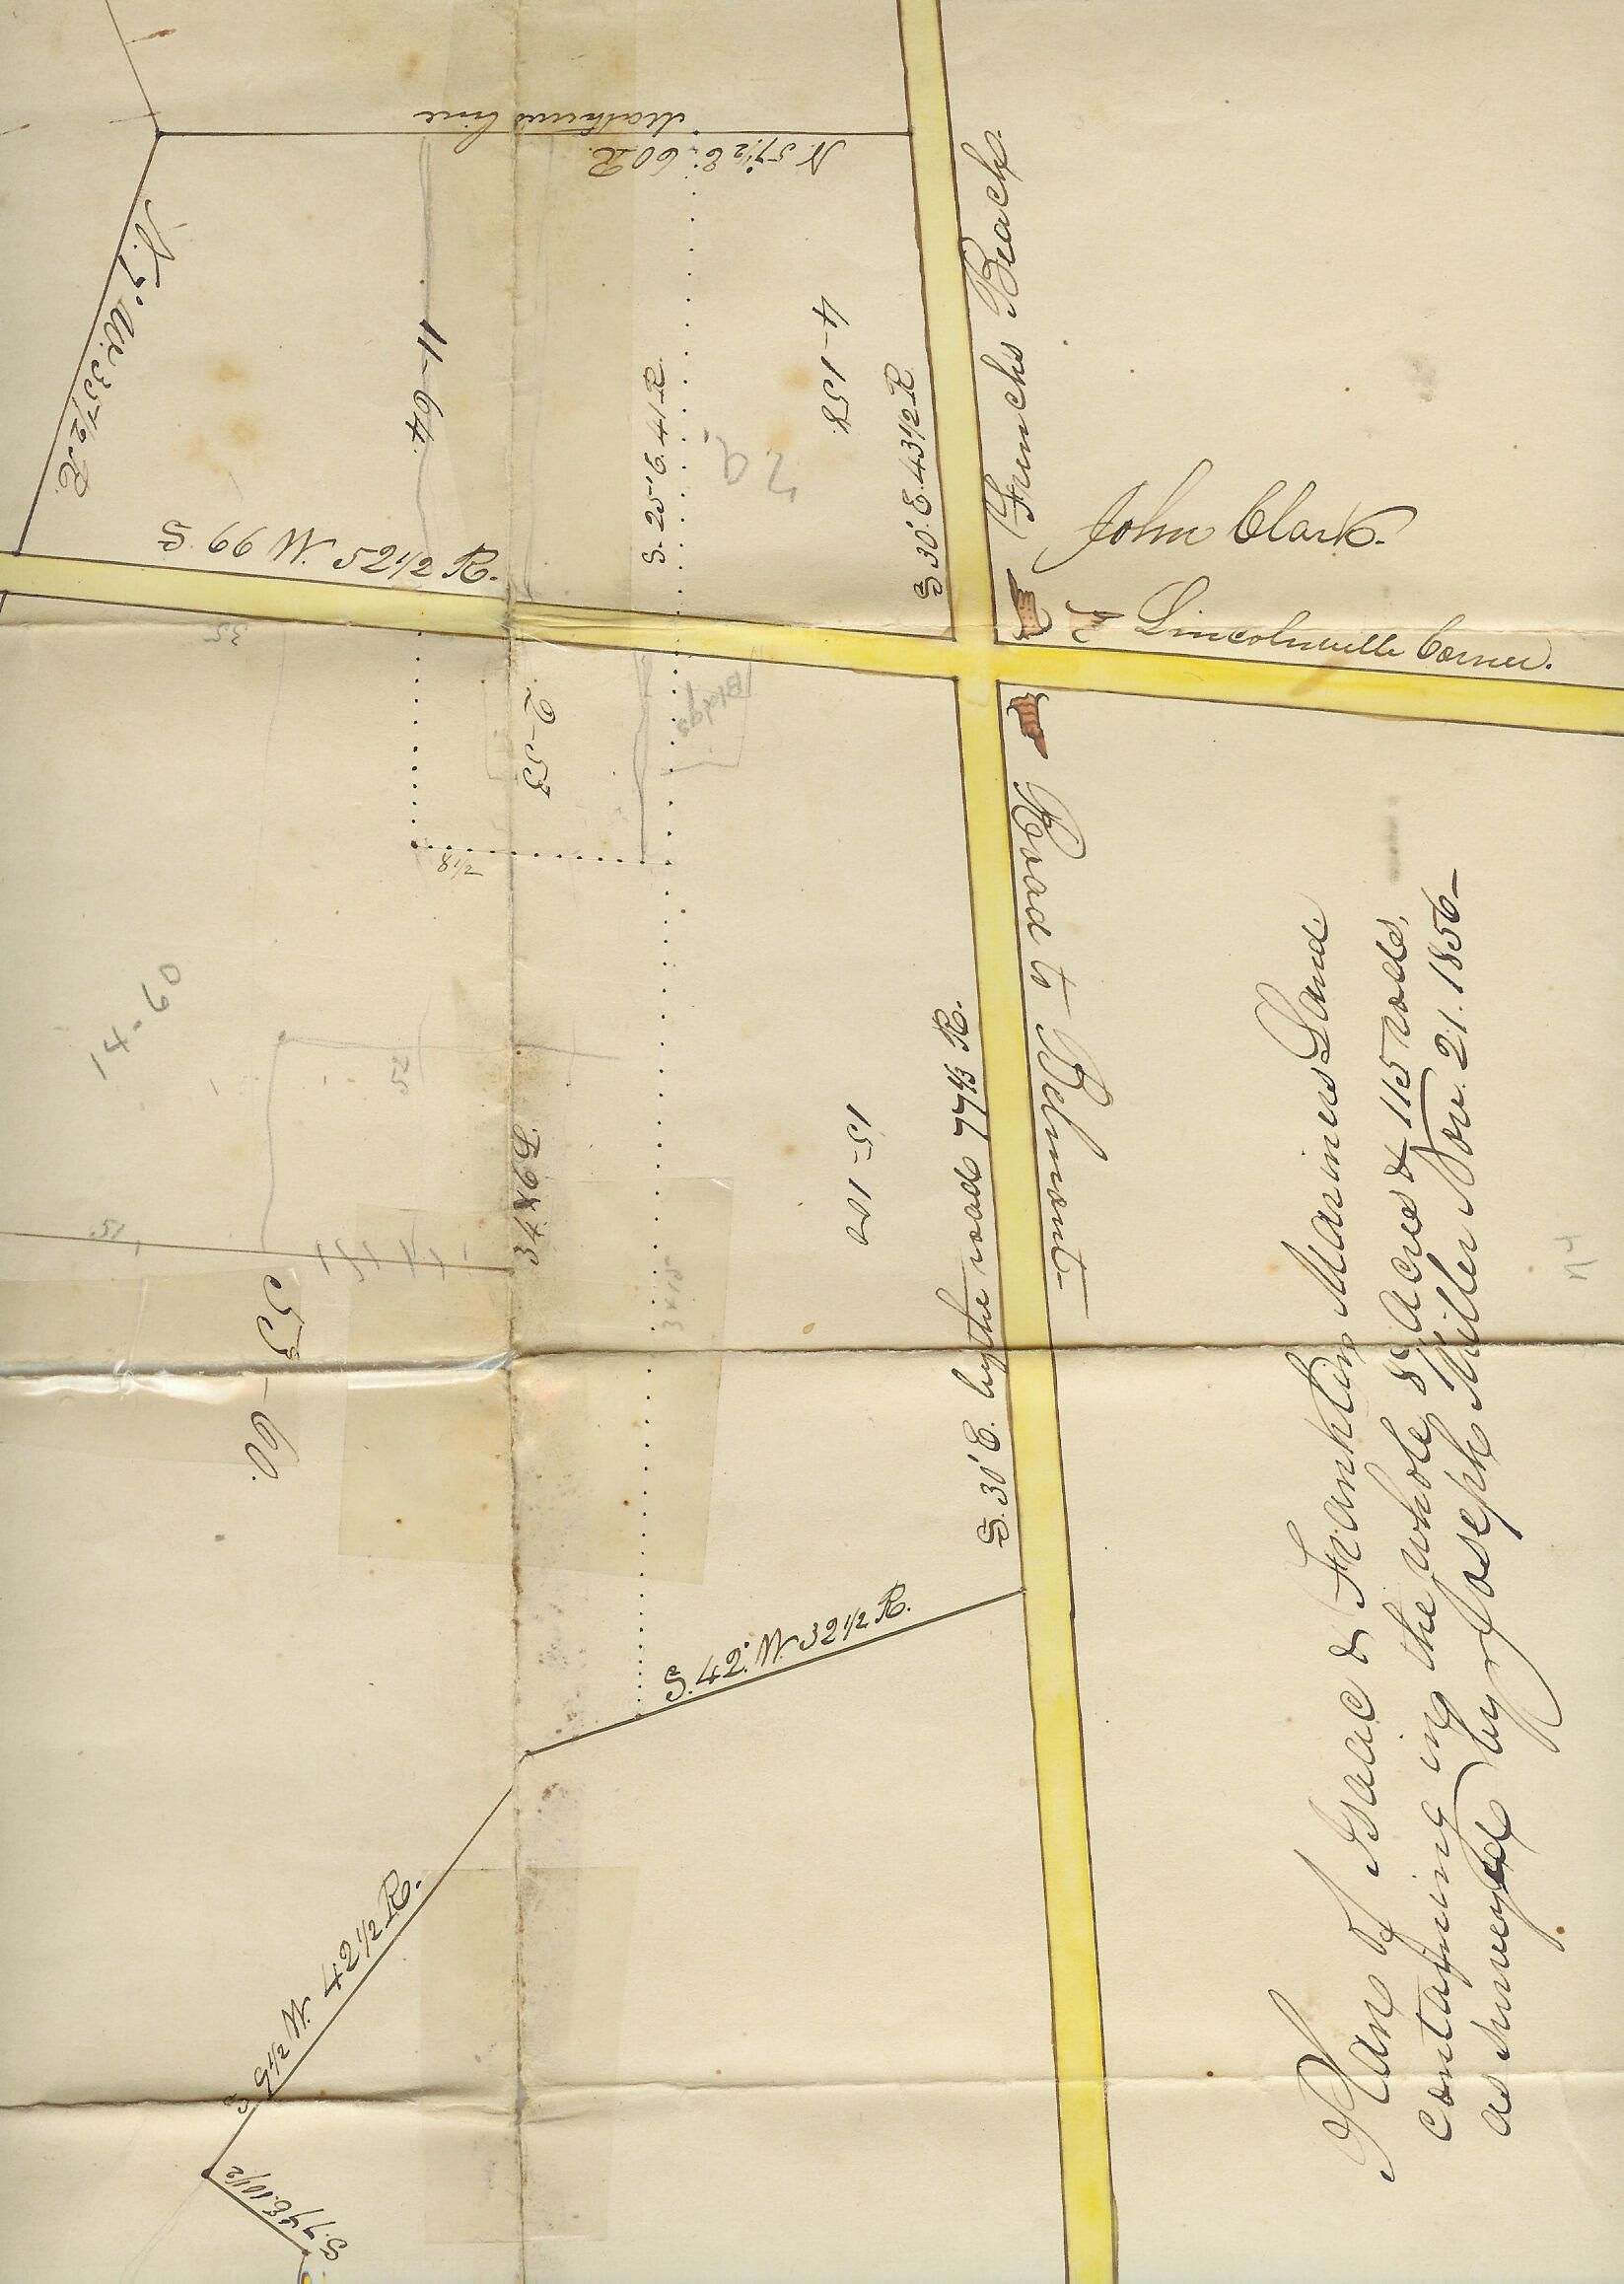 Plan of Isaac & Franklin Mariners Land
containing in the whole 81 Acres & 115 rods,
as surveyed by Joseph Miller Nov. 21. 1856—
Frenchs Beach.
John Clark.
Lincolnville Corner.
Road to Belmont.
line
N. 57½ E. 60 R.
N. 7° W. 35½ R.
11-64.
S. 25° E. 41 R.
4-158.
S 30° E. 43½ R.
S. 66 W. 52½ R.
35
Bldgs
2-53
8½
14-60
52
15-
51
53-60.
S. 30° E. by the road 77⅓ R.
S. 42° W. 32½ R.
S. 9½ W. 42½ R.